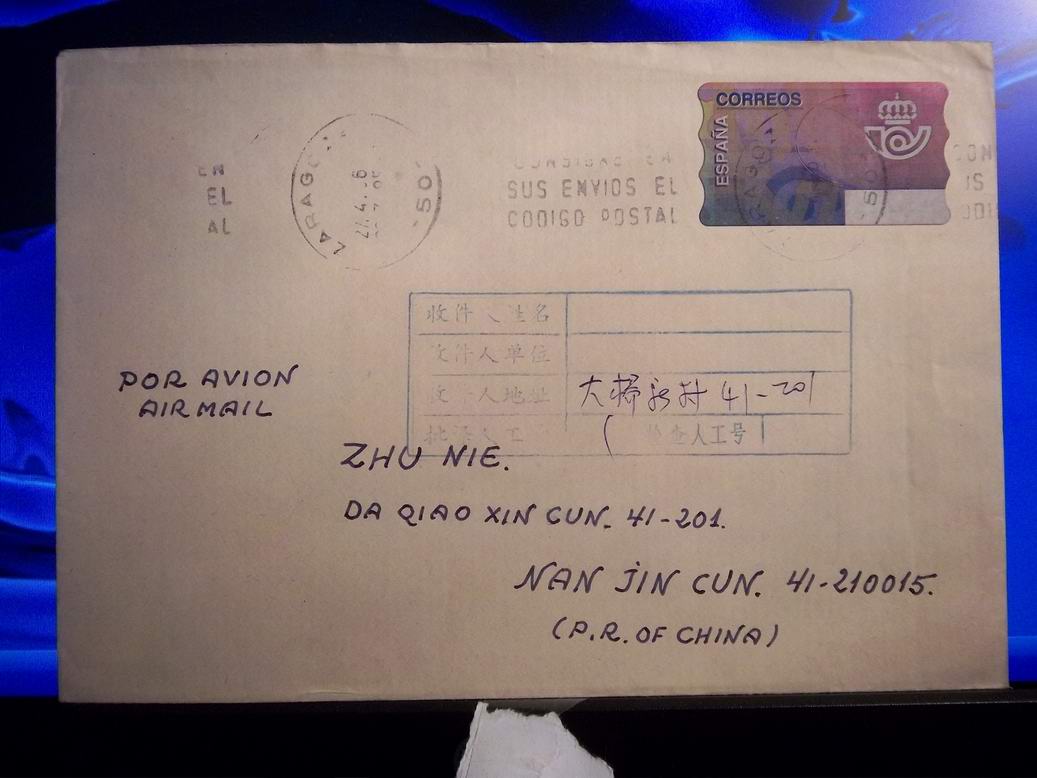 CORREOS
ESPAÑA
EN
EL
AL
ZARAGO
50
SUS ENVIOS EL
CODIGO POSTAL
收件人姓名
收件人单位
收件人地址 大桥新村 41-201
批译人工 检查人工号
POR AVION
AIR MAIL
ZHU NIE.
DA QIAO XIN CUN. 41-201.
NAN JIN CUN. 41-210015.
(P.R. OF CHINA)